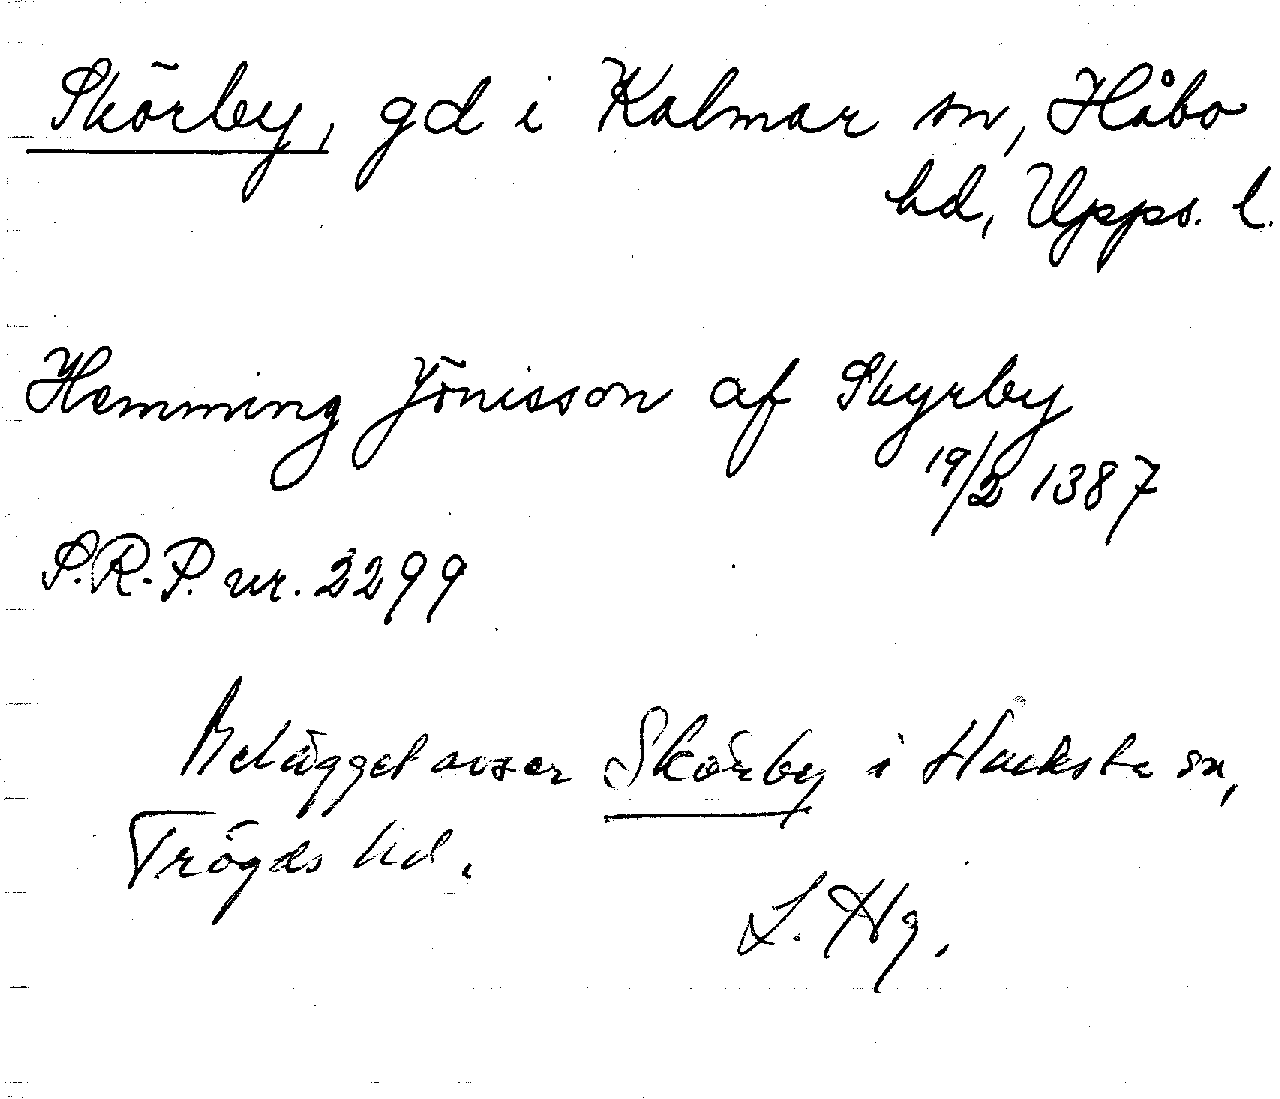 Skörby, gd i Kalmar sn, Håbo
hd, Upps. l.
Hemming Jönisson af Skyrby
19/2 1387
S.R.P. nr. 2299
Belägget avser Skörby i Hacksta sn,
Trögds hd.
L. Hg.